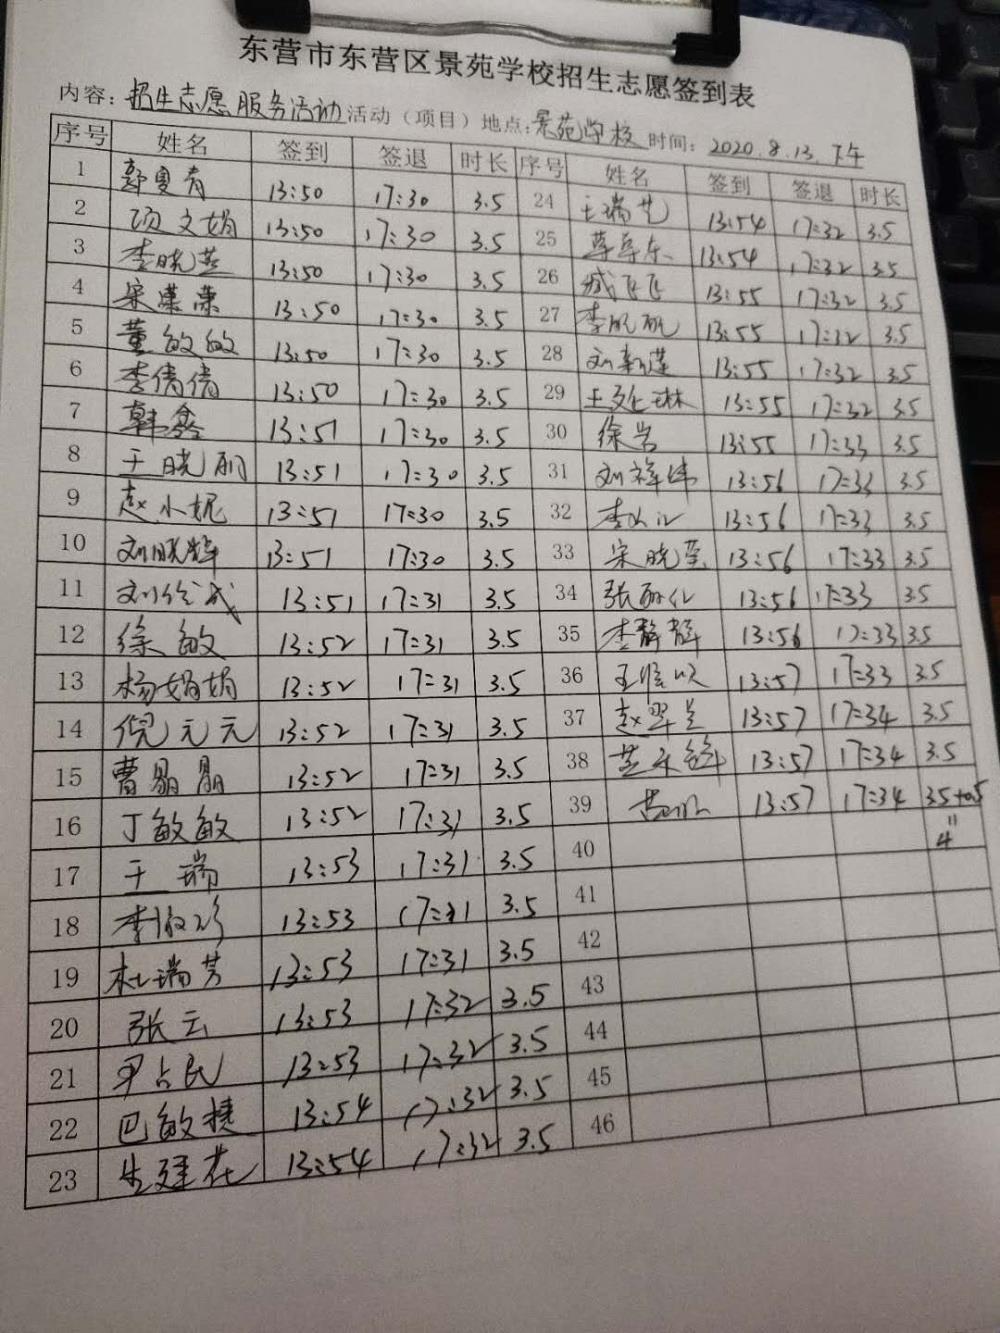 东营市东营区景苑学校招生志愿签到表
内容：招生志愿服务活动活动（项目）地点：景苑学校 时间：2020.8.13.下午
序号 姓名 签到 签退 时长 序号 姓名 签到 签退 时长
1 郭夏青 13:50 17:30 3.5 24 王瑞芝 13:54 17:32 3.5
2 项文娟 13:50 17:30 3.5 25 13:54 17:32 3.5
3 李晓燕 13:50 17:30 3.5 26 臧飞飞 13:55 17:32 3.5
4 宋潇潇 13:50 17:30 3.5 27 李帆帆 13:55 17:32 3.5
5 董敏敏 13:50 17:30 3.5 28 刘新莲 13:55 17:32 3.5
6 李倩倩 13:50 17:30 3.5 29 13:55 17:32 3.5
7 韩鑫 13:51 17:30 3.5 30 徐岩 13:55 17:33 3.5
8 于晓丽 13:51 17:30 3.5 31 刘祥伟 13:56 17:33 3.5
9 赵小妮 13:51 17:30 3.5 32 13:56 17:33 3.5
10 刘晓辉 13:51 17:30 3.5 33 宋晓莹 13:56 17:33 3.5
11 13:51 17:31 3.5 34 张 13:56 17:33 3.5
12 徐敏 13:52 17:31 3.5 35 李静静 13:56 17:33 3.5
13 杨娟娟 13:52 17:31 3.5 36 13:57 17:33 3.5
14 倪元元 13:52 17:31 3.5 37 赵翠兰 13:57 17:34 3.5
15 曹晶晶 13:52 17:31 3.5 38 13:57 17:34 3.5
16 丁敏敏 13:52 17:31 3.5 39 13:57 17:34 3.5+0.5
=4
17 王瑞 13:53 17:31 3.5 40
18 李 13:53 17:31 3.5 41
19 杜瑞芳 13:53 17:31 3.5 42
20 张云 13:53 17:32 3.5 43
21 尹占民 13:53 17:32 3.5 44
22 巴敏捷 13:54 17:32 3.5 45
23 生建花 13:54 17:32 3.5 46